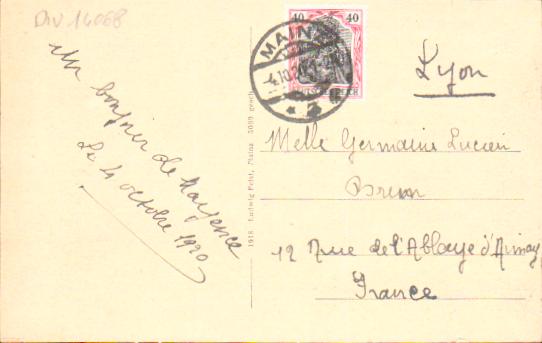 Div 14068
Un bonjour de Mayence
Le 4 octobre 1920
40 40
MAINZ
4.10.20
* 2
1918. Ludwig Feist, Mainz. 5089 gesch.
Lyon
Melle Germaine Lucien
12 Rue de l'Abbaye d'Ainay
France